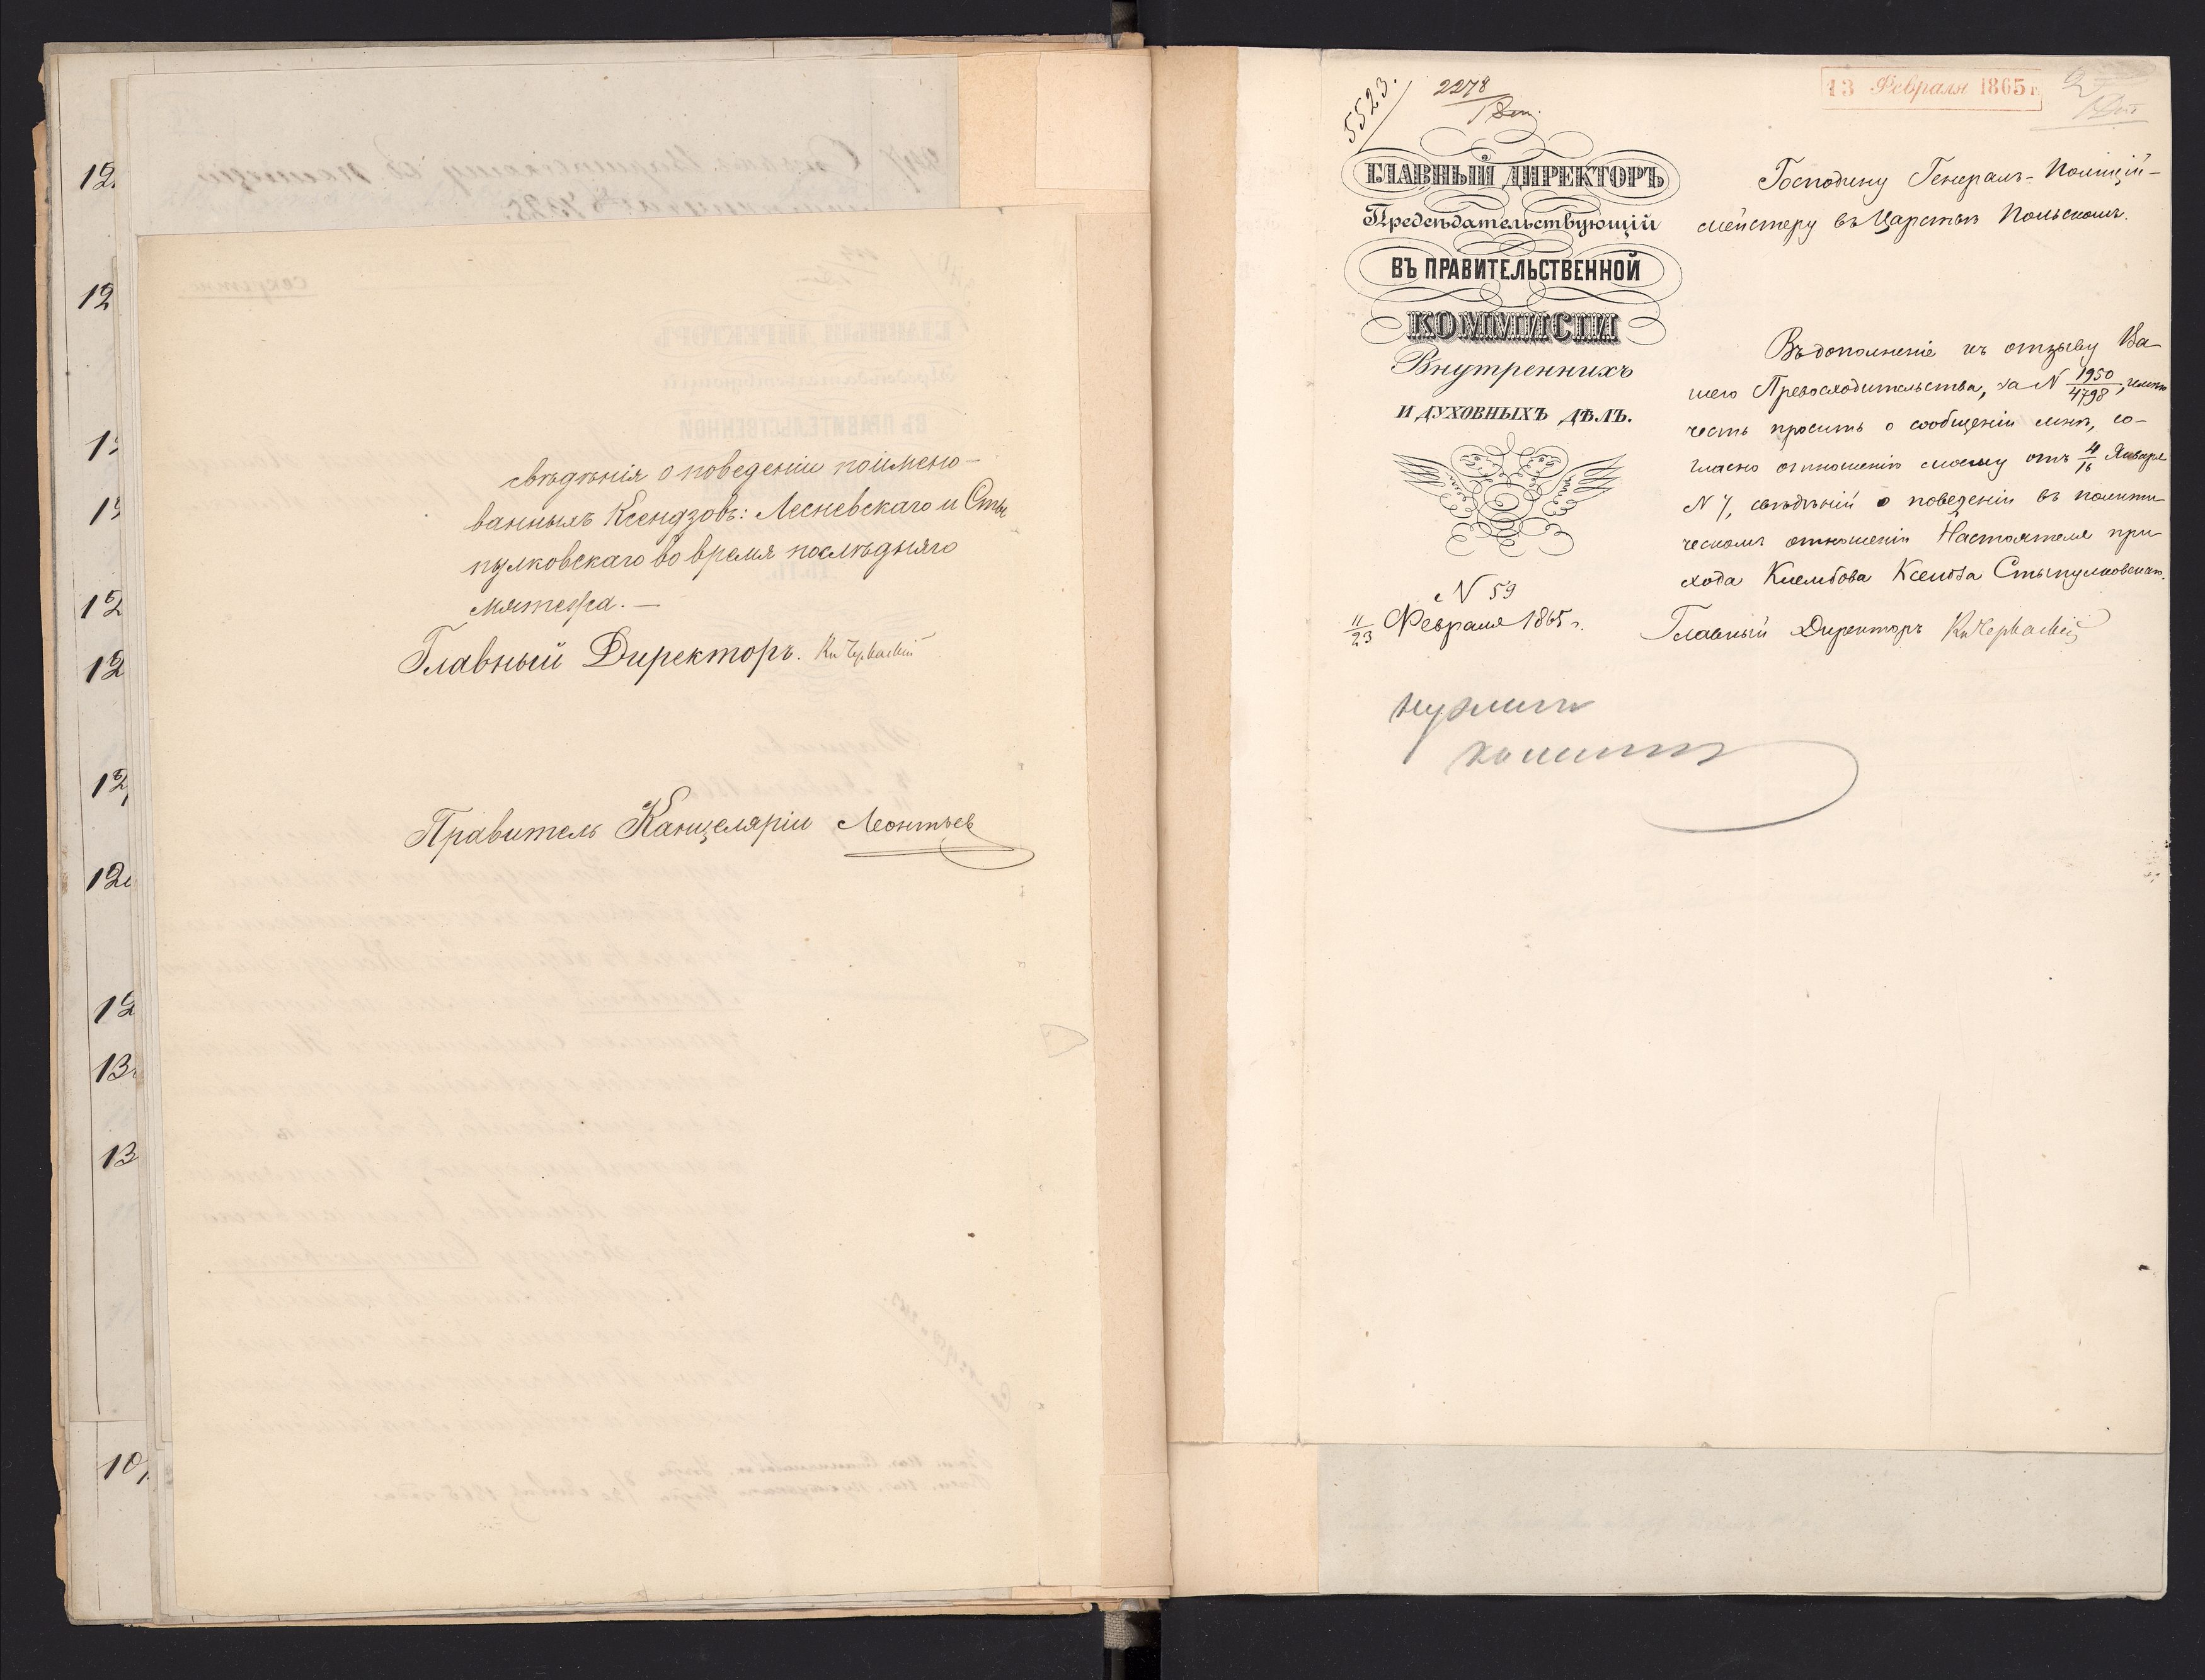 12
12
12
12
12
12
12
13
13
свѣдѣнія о поведеніи поимено-
ванныхъ Ксендзовъ: Лесневскаго и Сты-
пулковскаго во время послѣдняго
мятежа. —
Главный Директоръ. Кн Черкаскій
Правитель Канцеляріи Леонтьев
5523.
2278
13 Февраля 1865 г.
ГЛАВНЫЙ ДИРЕКТОРЪ
Предсѣдательствующій
ВЪ ПРАВИТЕЛЬСТВЕННОЙ
КОММИСІИ
Внутреннихъ
И ДУХОВНЫХЪ ДѢЛЪ.
N 59
11/23 Февраля 1865 г.
Господину Генералъ-Полицій-
мейстеру въ Царствѣ Польскомъ.
Въ дополненіе къ отзыву Ва-
шего Превосходительства, за N 1950/4798, имѣю
честь просить о сообщеніи мнѣ, со-
гласно отношенію моему отъ 4/16 Января
N 7, свѣдѣній о поведеніи въ полити-
ческомъ отношеніи Настоятеля при-
хода Клембова Ксендза Стыпулковскаго.
Главный Директоръ Кн Черкаскій